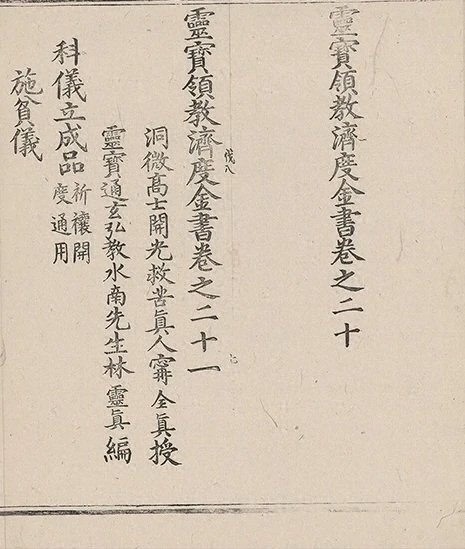 靈寶領教濟度金書卷之二十
靈寶領教濟度金書卷之二十一
伐八
洞微高士開光救苦眞人甯全眞授
靈寶通玄弘教水南先生林靈眞編
科儀立成品祈禳開
度通用
施食儀